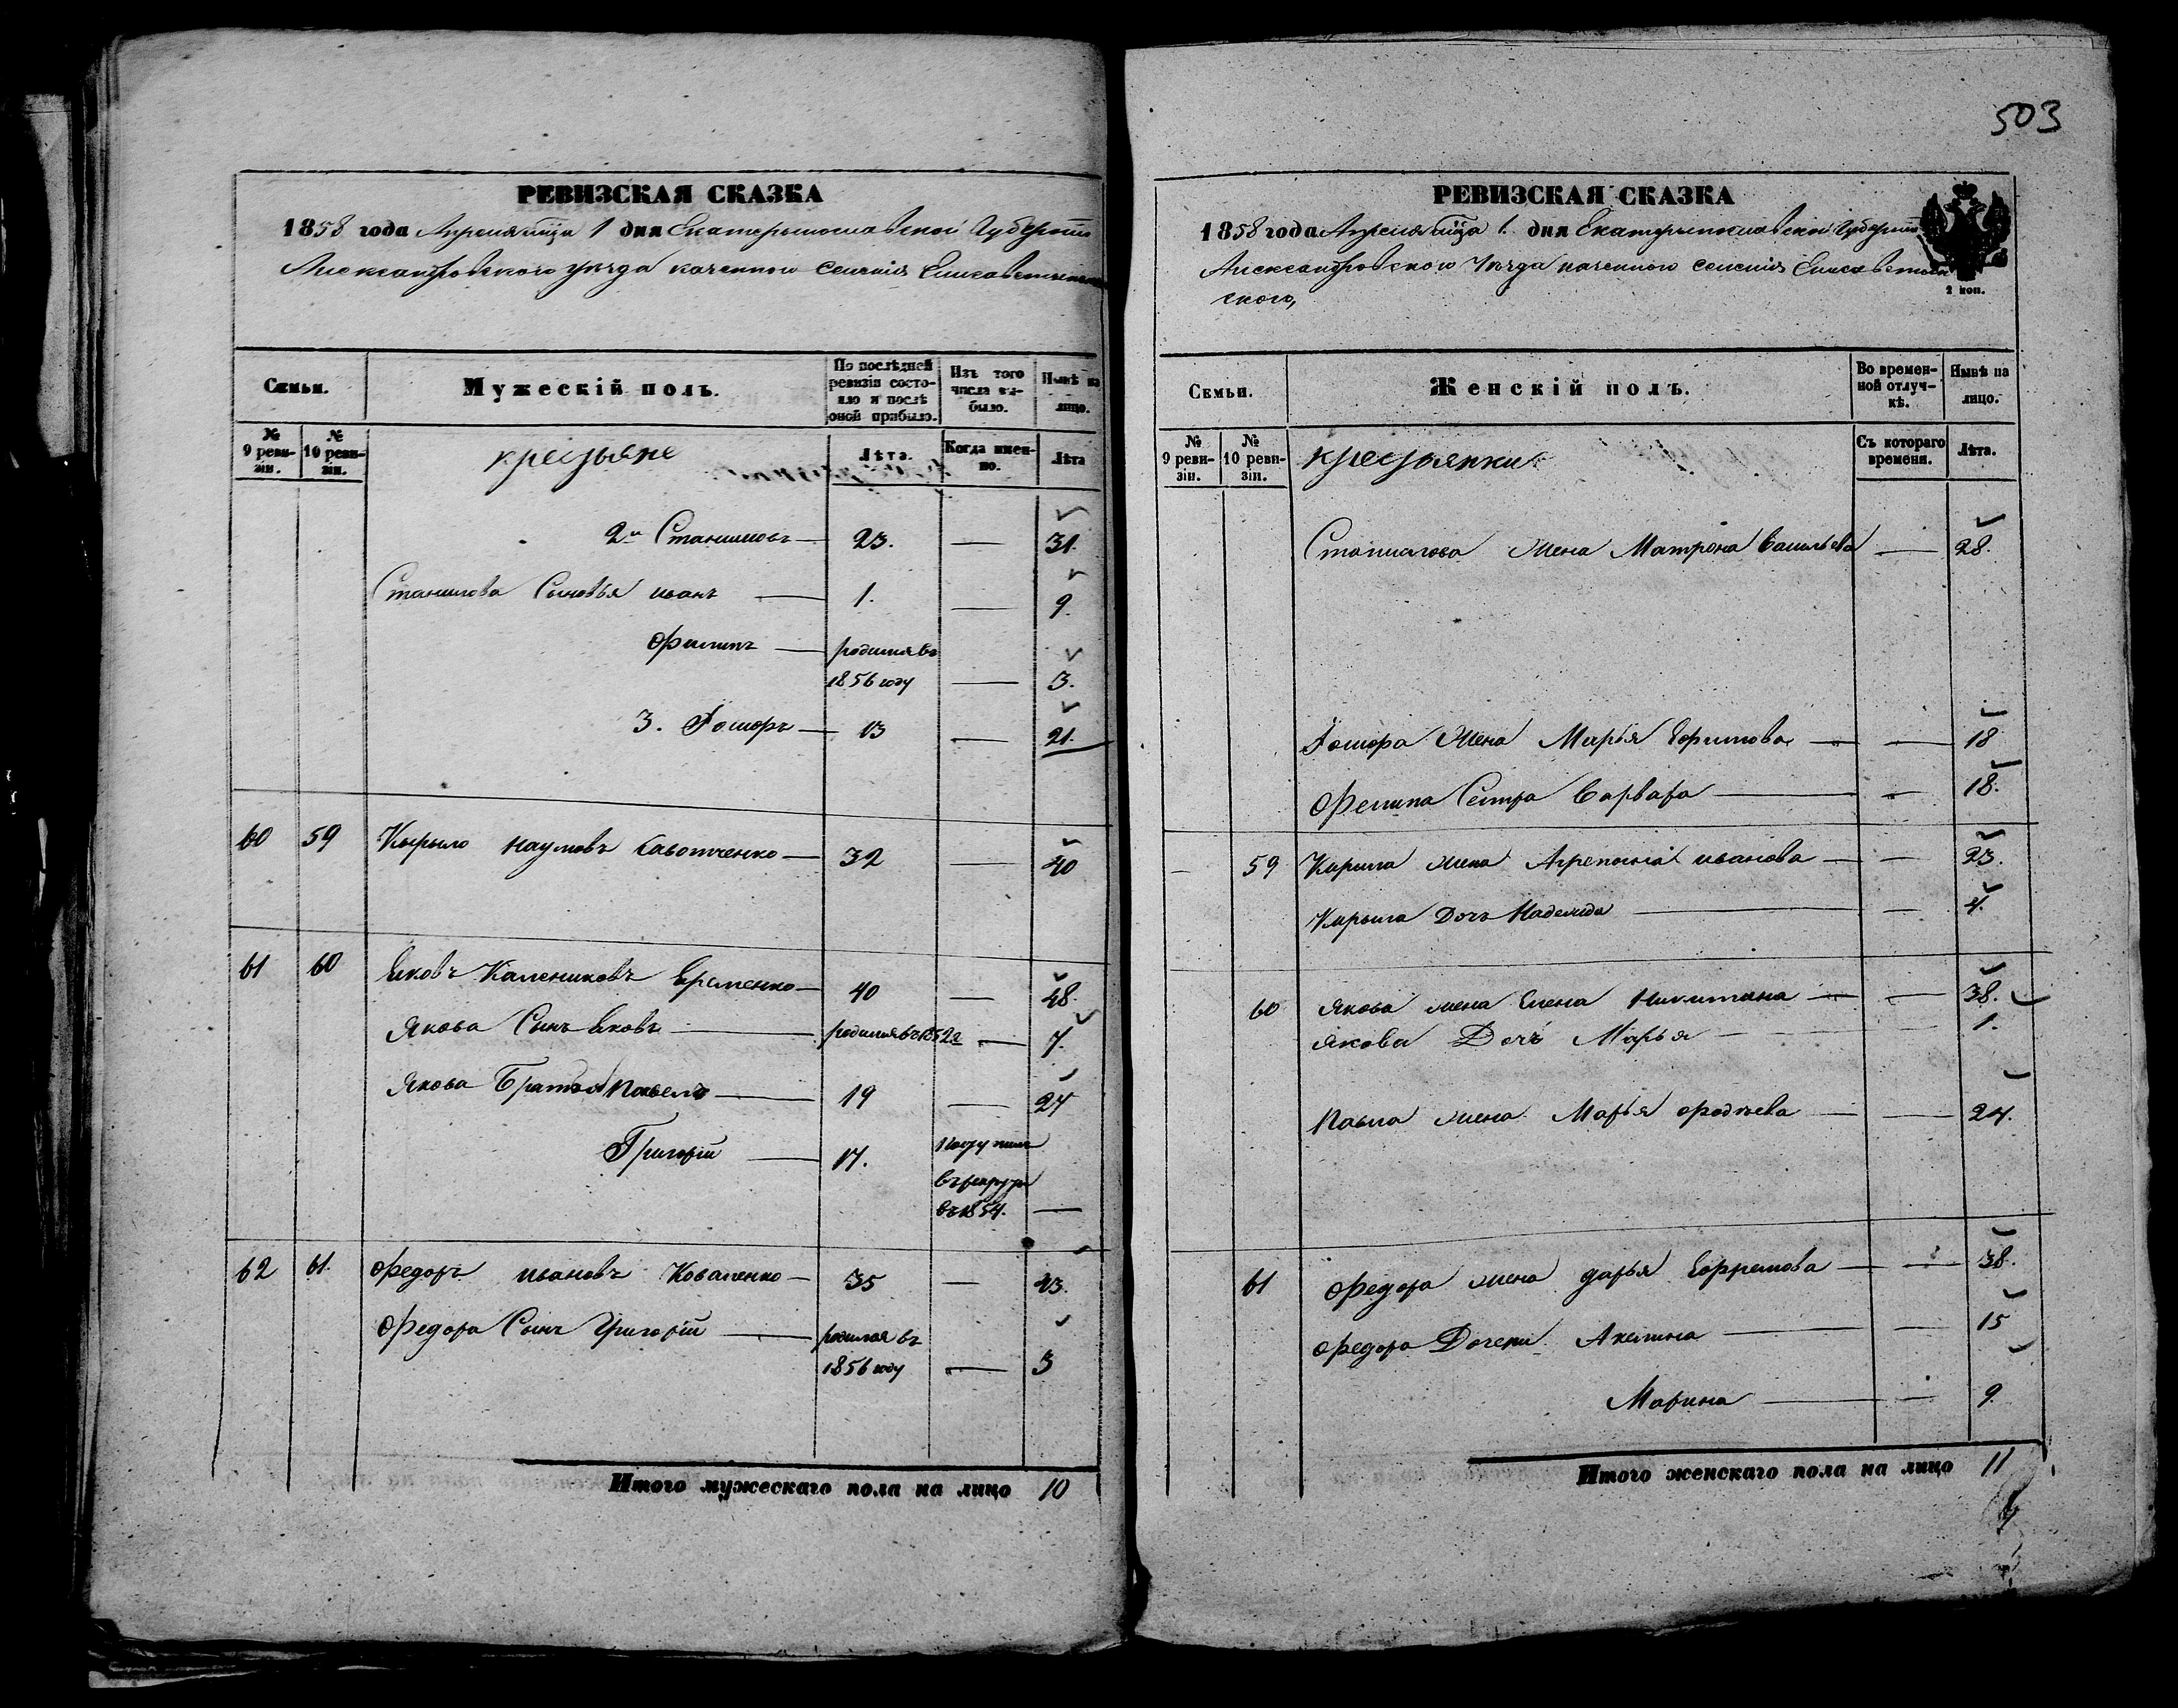 503
РЕВИЗСКАЯ СКАЗКА
1858 года Апреля мца 1 дня Екатеринославской Губернии
Александровского уезда казенного селения
Семьи.
Мужескій полъ.
По послѣдней ревизіи состояло и послѣ оной прибыло.
Изъ того числа выбыло.
Нынѣ на лицо.
№ 9 ревизіи.
№ 10 ревизіи.
крестьяне
Лѣта.
Когда именно.
Лѣта
2й 23. — 31.
сыновья иванъ — 1. — 9.
Филипъ — родился въ
1856 году — 3.
3. — 13 — 21.
60 59 Кырыло Наумовъ — 32 — 40
61 60 Яковъ Калениковъ Еременко — 40 — 48.
Якова Сынъ Яковъ — родился въ 1852г — 7.
Якова Братья Павелъ — 19 — 27
Григорій — 17. Поступилъ
въ рекруты
въ 1854. —
62 61. Федоръ ивановъ Коваленко — 35 — 43.
Федора Сынъ Григорій — родился въ
1856 году — 3
Итого мужескаго пола на лицо 10
РЕВИЗСКАЯ СКАЗКА
1858 года Апреля мца 1. дня Екатеринославской Губернии
Александровского Уезда казенного селения
ского,
2 коп.
Семьи.
Женскій полъ.
Во временной отлучкѣ.
Нынѣ на лицо.
№ 9 ревизіи.
№ 10 ревизіи.
крестьянки
Съ котораго времени.
Лѣта.
Жена Матрона Васильева — 28.
Жена Марья — — 18
Сестра Варвара — — 18.
59 Кирила жена иванова — — 23.
Кирыла Дочь Надежда — — 4.
60 Якова жена Елена Никитина — — 38.
Якова Дочь Марья — 1.
Павла жена Марья — — 24.
61 Федора жена дарья Ефремова — — 38.
Федора Дочери Акелина — — 15
Марина — — 9.
Итого женскаго пола на лицо 11